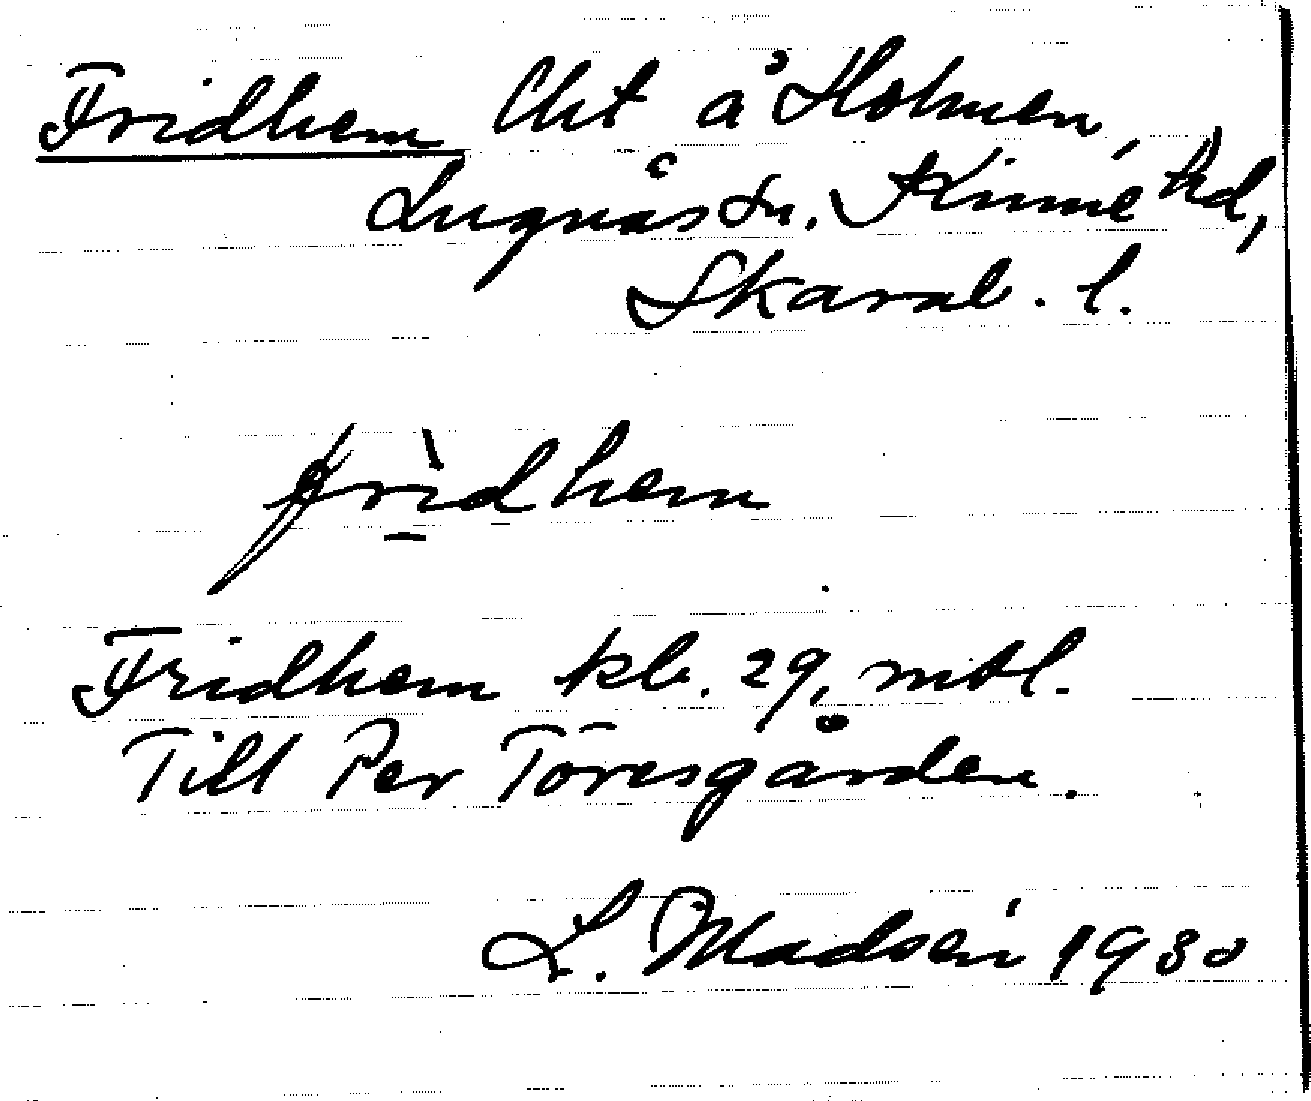 Fridhem Cht å Holmen,
Lugnås sn. Kinne hd,
Skarab. l.
fri̲dhem
Fridhem kb. 29, mtl.
Till Per Töresgården.
L. Madsén 1930